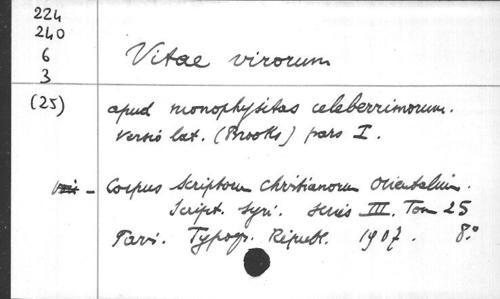 224
240
6
3
(25)
Vitae virorum
apud monophysitas celeberrimorum.
Versio lat. (Brooks) pars I.
- Corpus Scriptorum Christianorum Orientalium.
Script. Syri. Series III. Tom 25
Paris. Typogr. Républ. 1907. 8:°